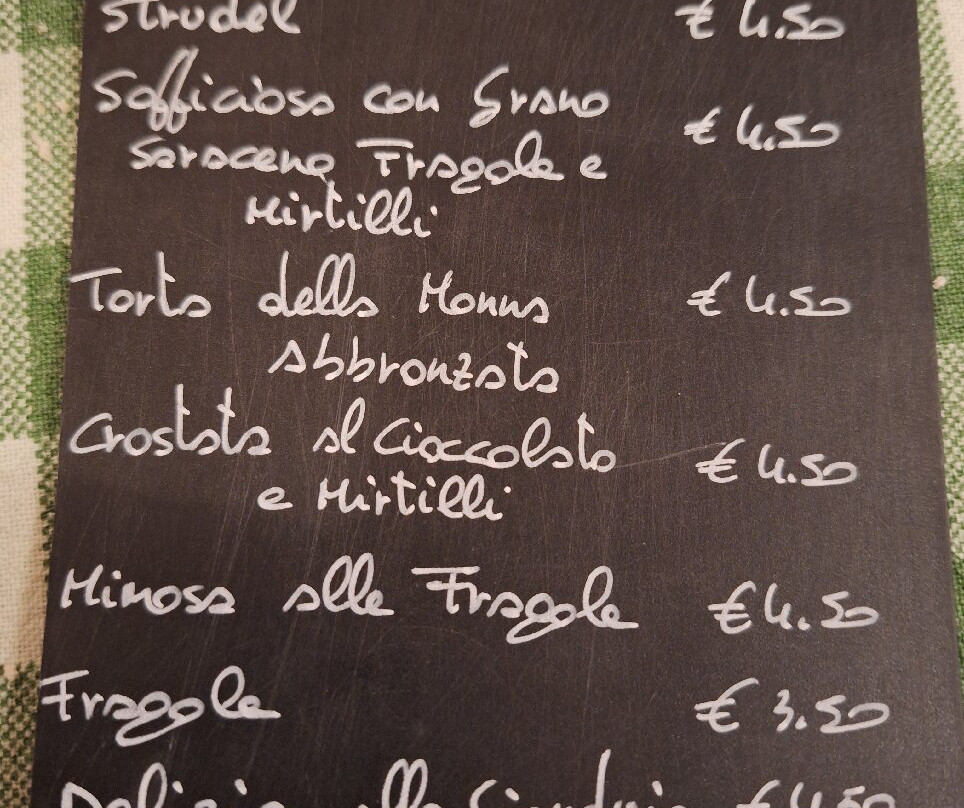 Strudel € 4.50
Sofficioso con Grano € 4.50
Saraceno Fragole e
Mirtilli
Torta della Nonna € 4.50
abbronzata
Crostata al Cioccolato € 4.50
e Mirtilli
Mimosa alle Fragole € 4.50
Fragole € 3.50
Delizia alla Gianduia € 4.50